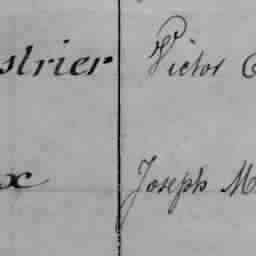 strier Victor
x Joseph M